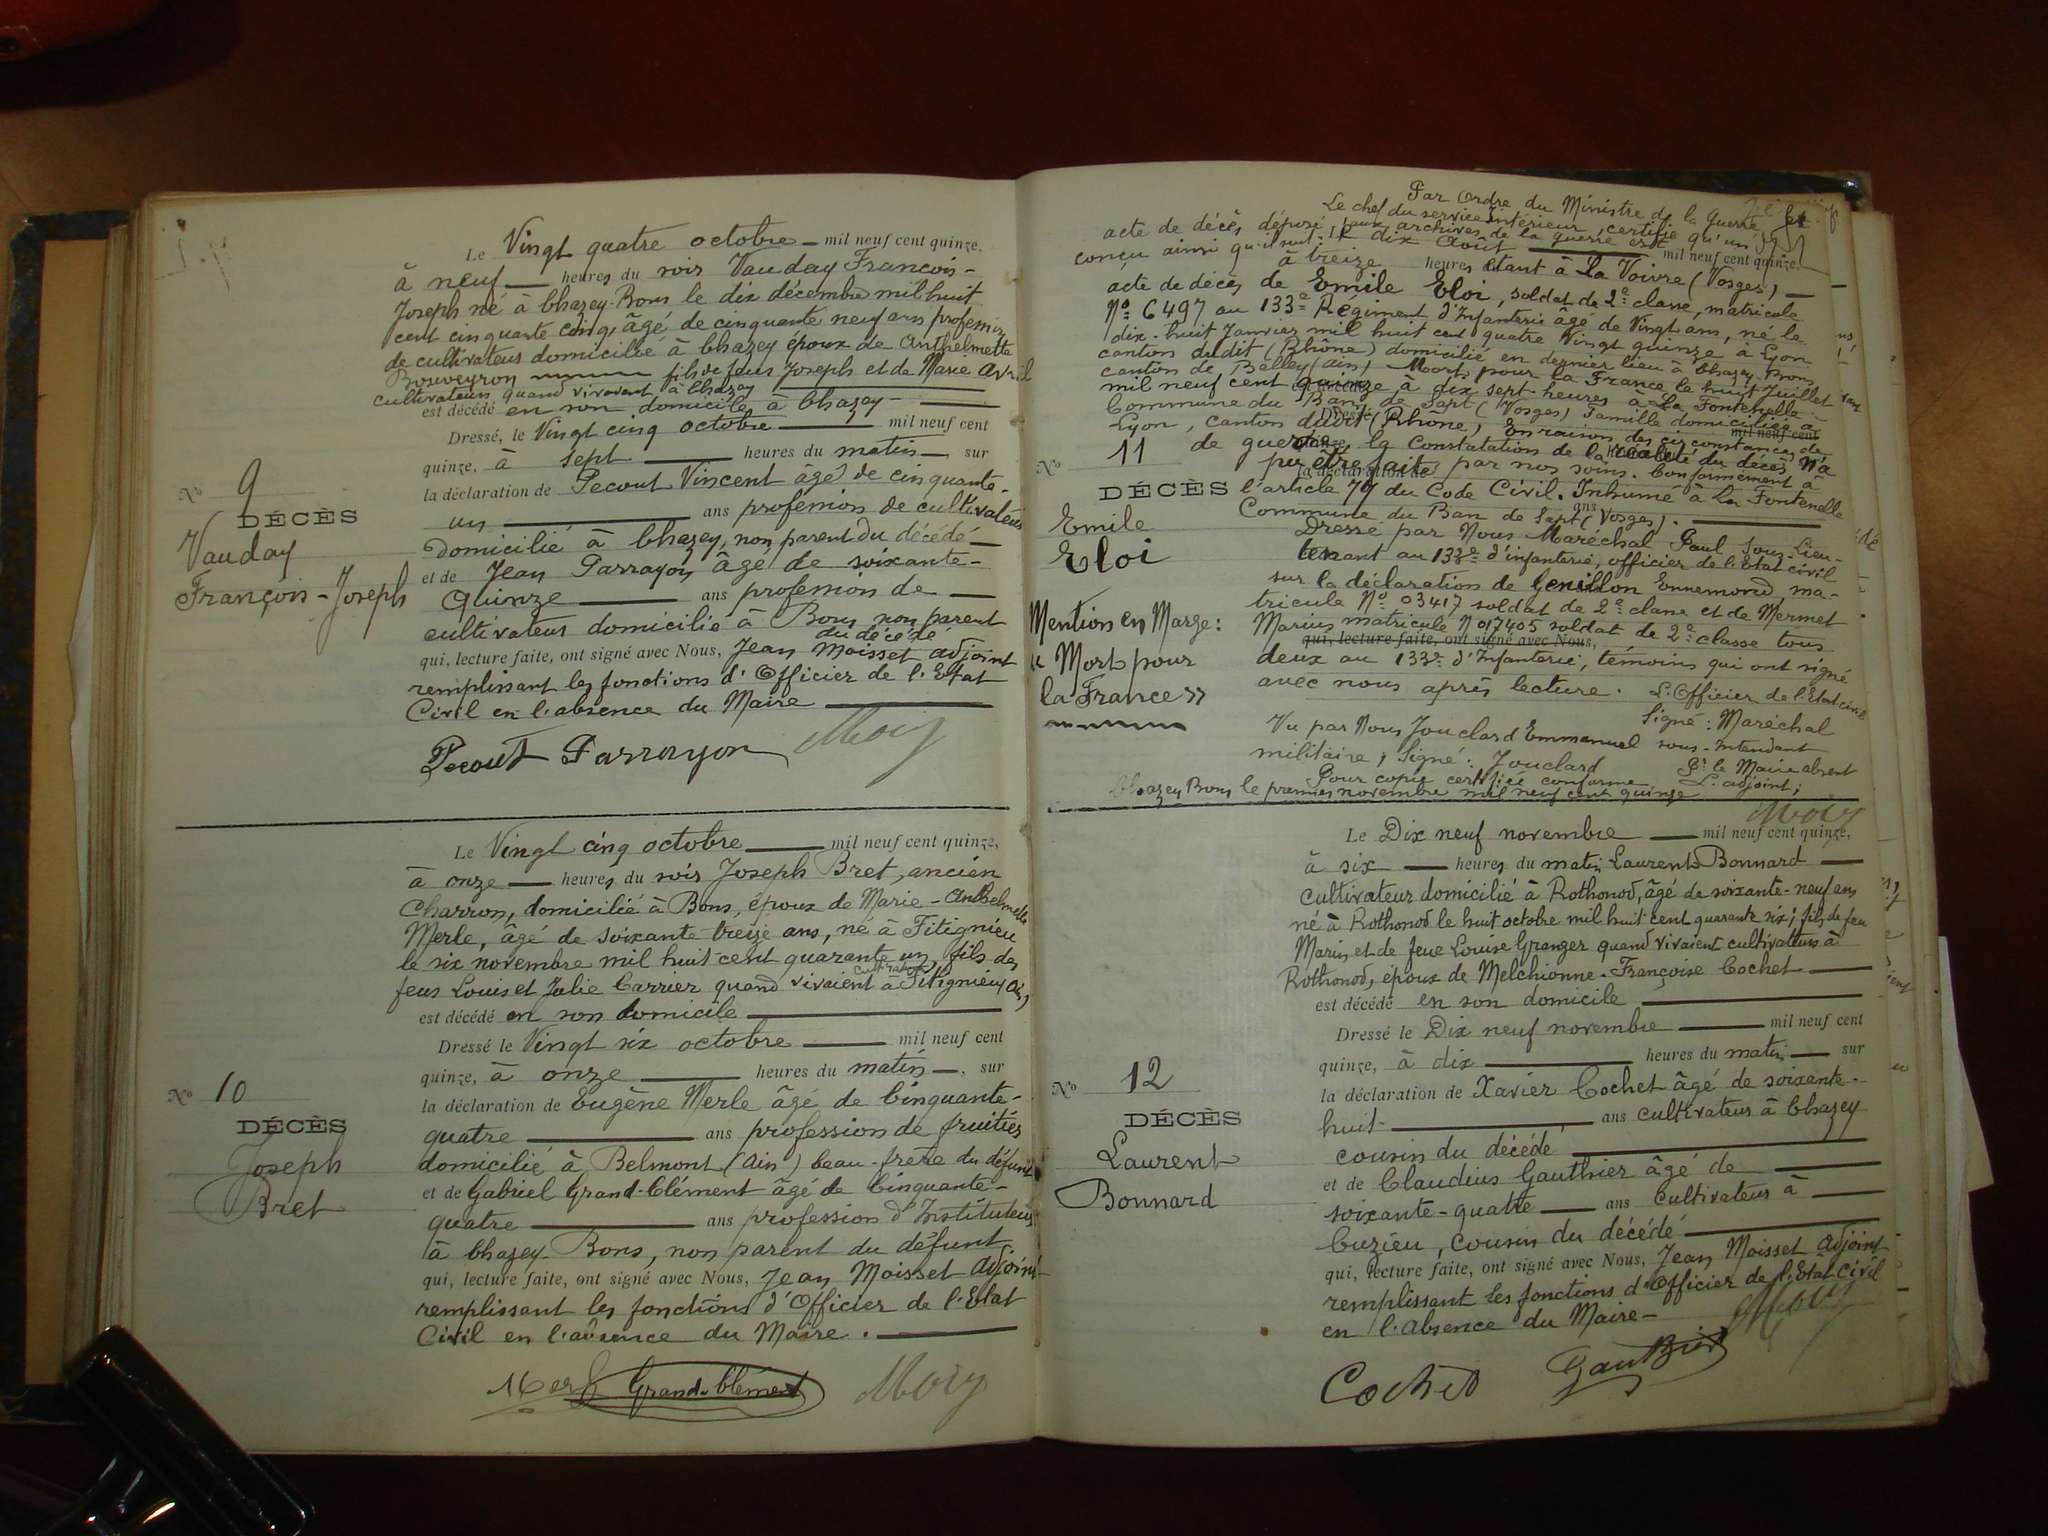 Le Vingt quatre octobre — mil neuf cent quinze,
à neuf — heures du soir Vauday François-
Joseph né à Chazey-Bons le dix décembre mil huit
cent cinquante cinq, âgé de cinquante neuf ans profession
de cultivateur domicilié à Chazey époux de Anthelmette
fils de feus Joseph et de Marie Avril
cultivateurs quand vivaient à Chazey
est décédé en son domicile à Chazey —
Dressé, le Vingt cinq octobre — mil neuf cent
quinze, à sept — heures du matin —, sur
la déclaration de Pecout Vincent âgé de cinquante-
un — ans profession de cultivateur
domicilié à Chazey, non parent du décédé —
et de Jean Parrayon âgé de soixante-
quinze — ans profession de —
cultivateur domicilié à Bons non parent
du décédé
qui, lecture faite, ont signé avec Nous, Jean Moisset adjoint
remplissant les fonctions d'Officier de l'Etat
Civil en l'absence du Maire —
Pecout Parrayon
No 9
DÉCÈS
Vauday
François-Joseph
Le Vingt cinq octobre — mil neuf cent quinze,
à onze — heures du soir Joseph Bret, ancien
Charron, domicilié à Bons, époux de Marie-Anthelmette
Merle, âgé de soixante treize ans, né à Fitignieu
le six novembre mil huit cent quarante un, fils des
feus Louis et Julie Carrier quand vivaient cultivateurs à Fitignieu (Ain)
est décédé en son domicile —
Dressé le Vingt six octobre — mil neuf cent
quinze, à onze — heures du matin —, sur
la déclaration de Eugène Merle âgé de Cinquante-
quatre — ans profession de fruitier
domicilié à Belmont (Ain) beau-frère du défunt
et de Gabriel Grand-Clément âgé de Cinquante-
quatre — ans profession d'Instituteur
à Chazey-Bons, non parent du défunt
qui, lecture faite, ont signé avec Nous, Jean Moisset adjoint
remplissant les fonctions d'Officier de l'Etat
Civil en l'absence du Maire. —
Merle Grand-Clément
No 10
DÉCÈS
Joseph
Bret
Par Ordre du Ministre de la Guerre
Le chef du service Intérieur certifie qu'un
acte de décès déposé aux archives de la guerre est
conçu ainsi qu'il suit: Le dix Août — mil neuf cent quinze
à treize heures étant à La Voivre (Vosges) —
acte de décès de Emile Eloi, soldat de 2e classe, matricule
No 6497 au 133e Régiment d'Infanterie âgé de Vingt ans, né le
dix-huit Janvier mil huit cent quatre Vingt quinze à Lyon
canton dudit (Rhône) domicilié en dernier lieu à Chazey-Bons
canton de Belley (Ain) Mort pour la France le huit Juillet
mil neuf cent quinze à dix sept heures à La Fontenelle
Commune du Ban de Sapt (Vosges) Famille domiciliée à
Lyon, canton dudit (Rhône) En raison des circonstances de
de guerre, la Constatation de la réalité du décès n'a
pu être faite par nos soins. Conformément à
l'article 79 du Code Civil. Inhumé à La Fontenelle
Commune du Ban de Sapt (Vosges). —
Dressé par Nous Maréchal Paul Sous-Lieu-
tenant au 133e d'infanterie, officier de l'Etat civil
sur la déclaration de Genillon Ennemond ma-
tricule No 03417 soldat de 2e classe et de Mermet
Marius matricule No 017405 soldat de 2e classe tous
qui, lecture faite, ont signé avec Nous,
deux au 133e d'Infanterie, témoins qui ont signé
avec nous après lecture. L'Officier de l'Etat civil
Signé: Maréchal
Vu par Nous Jouclard Emmanuel sous-Intendant
militaire, Signé: Jouclard
Pr le Maire absent
Pour copie certifiée conforme L'adjoint;
Chazey Bons le premier novembre mil neuf cent quinze
No 11
DÉCÈS
Emile
Eloi
Mention en Marge:
« Mort pour
la France »
Le Dix neuf novembre — mil neuf cent quinze,
à six — heures du matin Laurent Bonnard —
cultivateur domicilié à Rothonod, âgé de soixante-neuf ans
né à Rothonod le huit octobre mil huit cent quarante six; fils de feu
Marin et de feue Louise Granger quand vivaient cultivateurs à
Rothonod, époux de Melchionne-Françoise Cochet —
est décédé en son domicile —
Dressé le Dix neuf novembre — mil neuf cent
quinze, à dix — heures du matin — sur
la déclaration de Xavier Cochet âgé de soixante-
huit — ans cultivateur à Chazey
cousin du décédé —
et de Claudius Gauthier âgé de —
soixante-quatre — ans cultivateur à —
Cuzieu, cousin du décédé —
qui, lecture faite, ont signé avec Nous, Jean Moisset adjoint
remplissant les fonctions d'Officier de l'Etat Civil
en l'absence du Maire —
Cochet Gauthier
No 12
DÉCÈS
Laurent
Bonnard